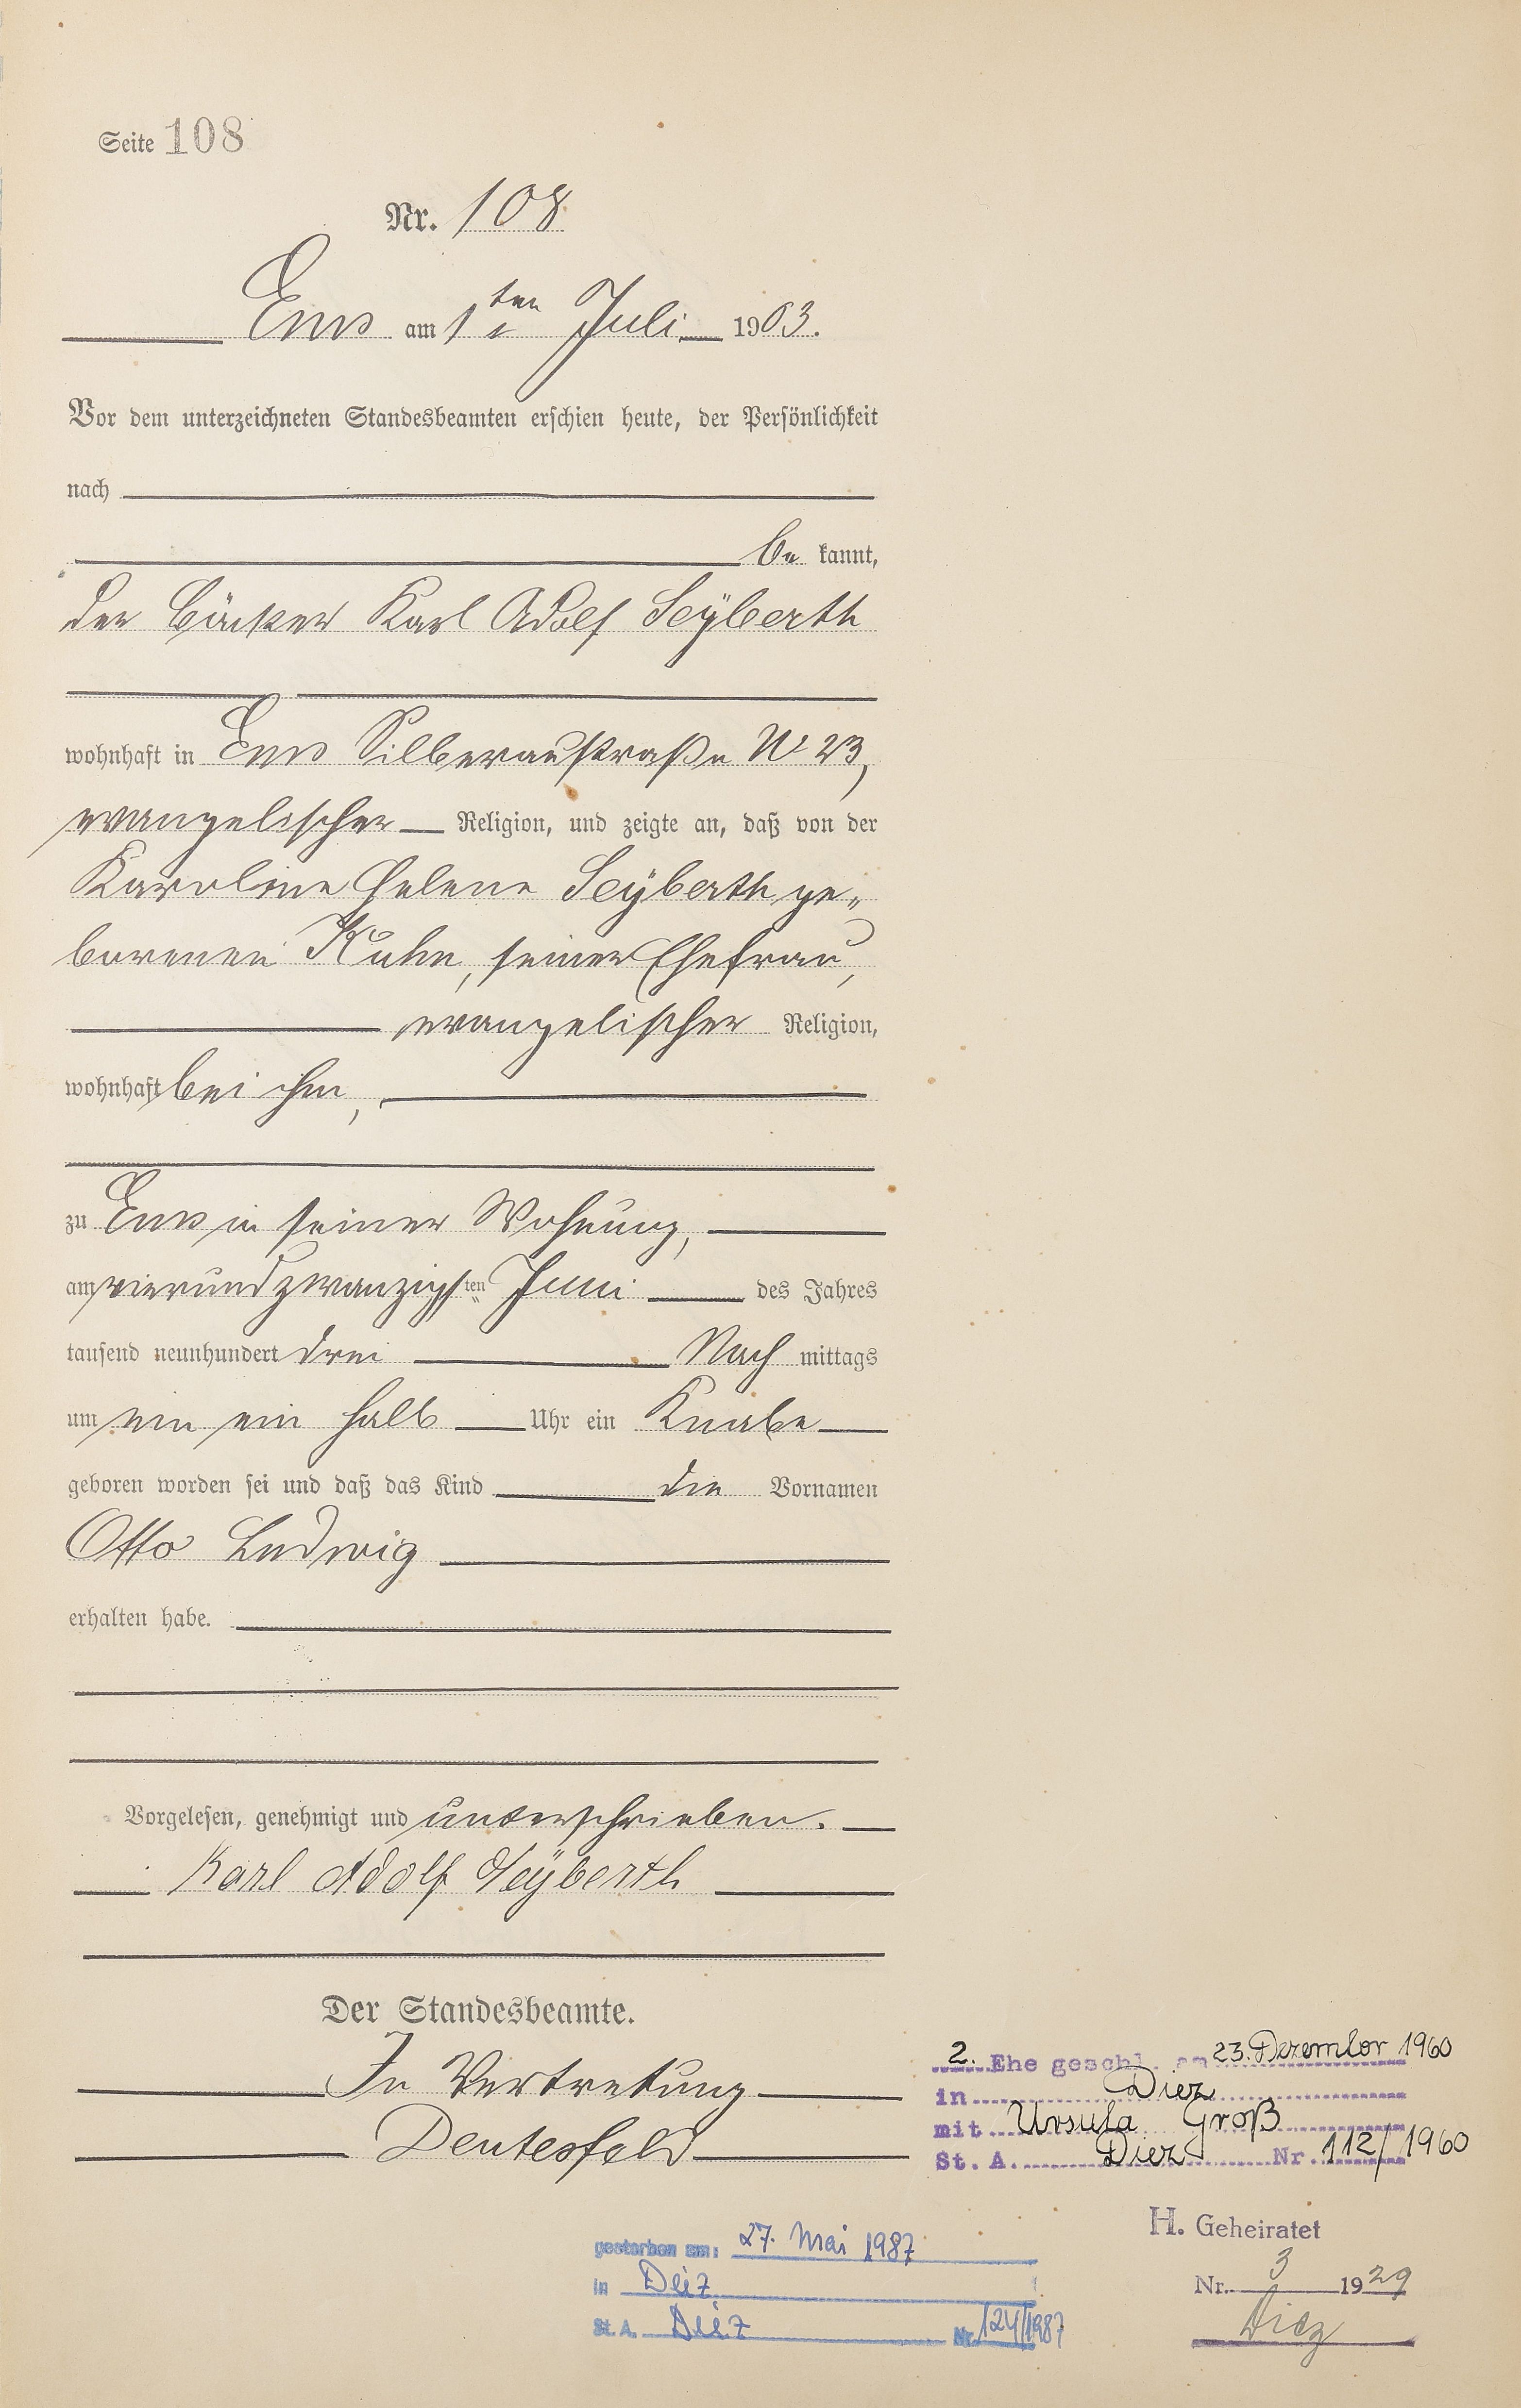 Seite 108
Nr. 108
Ems am 1ten Juli 1903.
Vor dem unterzeichneten Standesbeamten erschien heute, der Persönlichkeit
nach
be kannt,
der Bäcker Karl Adolf Seÿberth
wohnhaft in Ems Silberaustraße No 23,
evangelischer Religion, und zeigte an, daß von der
Karoline Helene Seÿberth ge„
borenen Kuhn, seiner Ehefrau,
evangelischer Religion,
wohnhaft bei ihm,
zu Ems in seiner Wohnung,
am vierundzwanzigsten Juni des Jahres
tausend neunhundert drei Nach mittags
um ein ein halb Uhr ein Knabe
geboren worden sei und daß das Kind die Vornamen
Otto Ludwig
erhalten habe.
Vorgelesen, genehmigt und unterschrieben.
Karl Adolf Seÿberth
Der Standesbeamte.
In Vertretung
Deutesfeld
2. Ehe geschl. am 23. Dezember 1960
in Diez
mit Ursula Groß
St. A. Diez Nr. 112/1960
gestorben am: 27. Mai 1987
in Diez
St. A. Diez Nr. 124/1987
H. Geheiratet
Nr. 3 1929
Diez